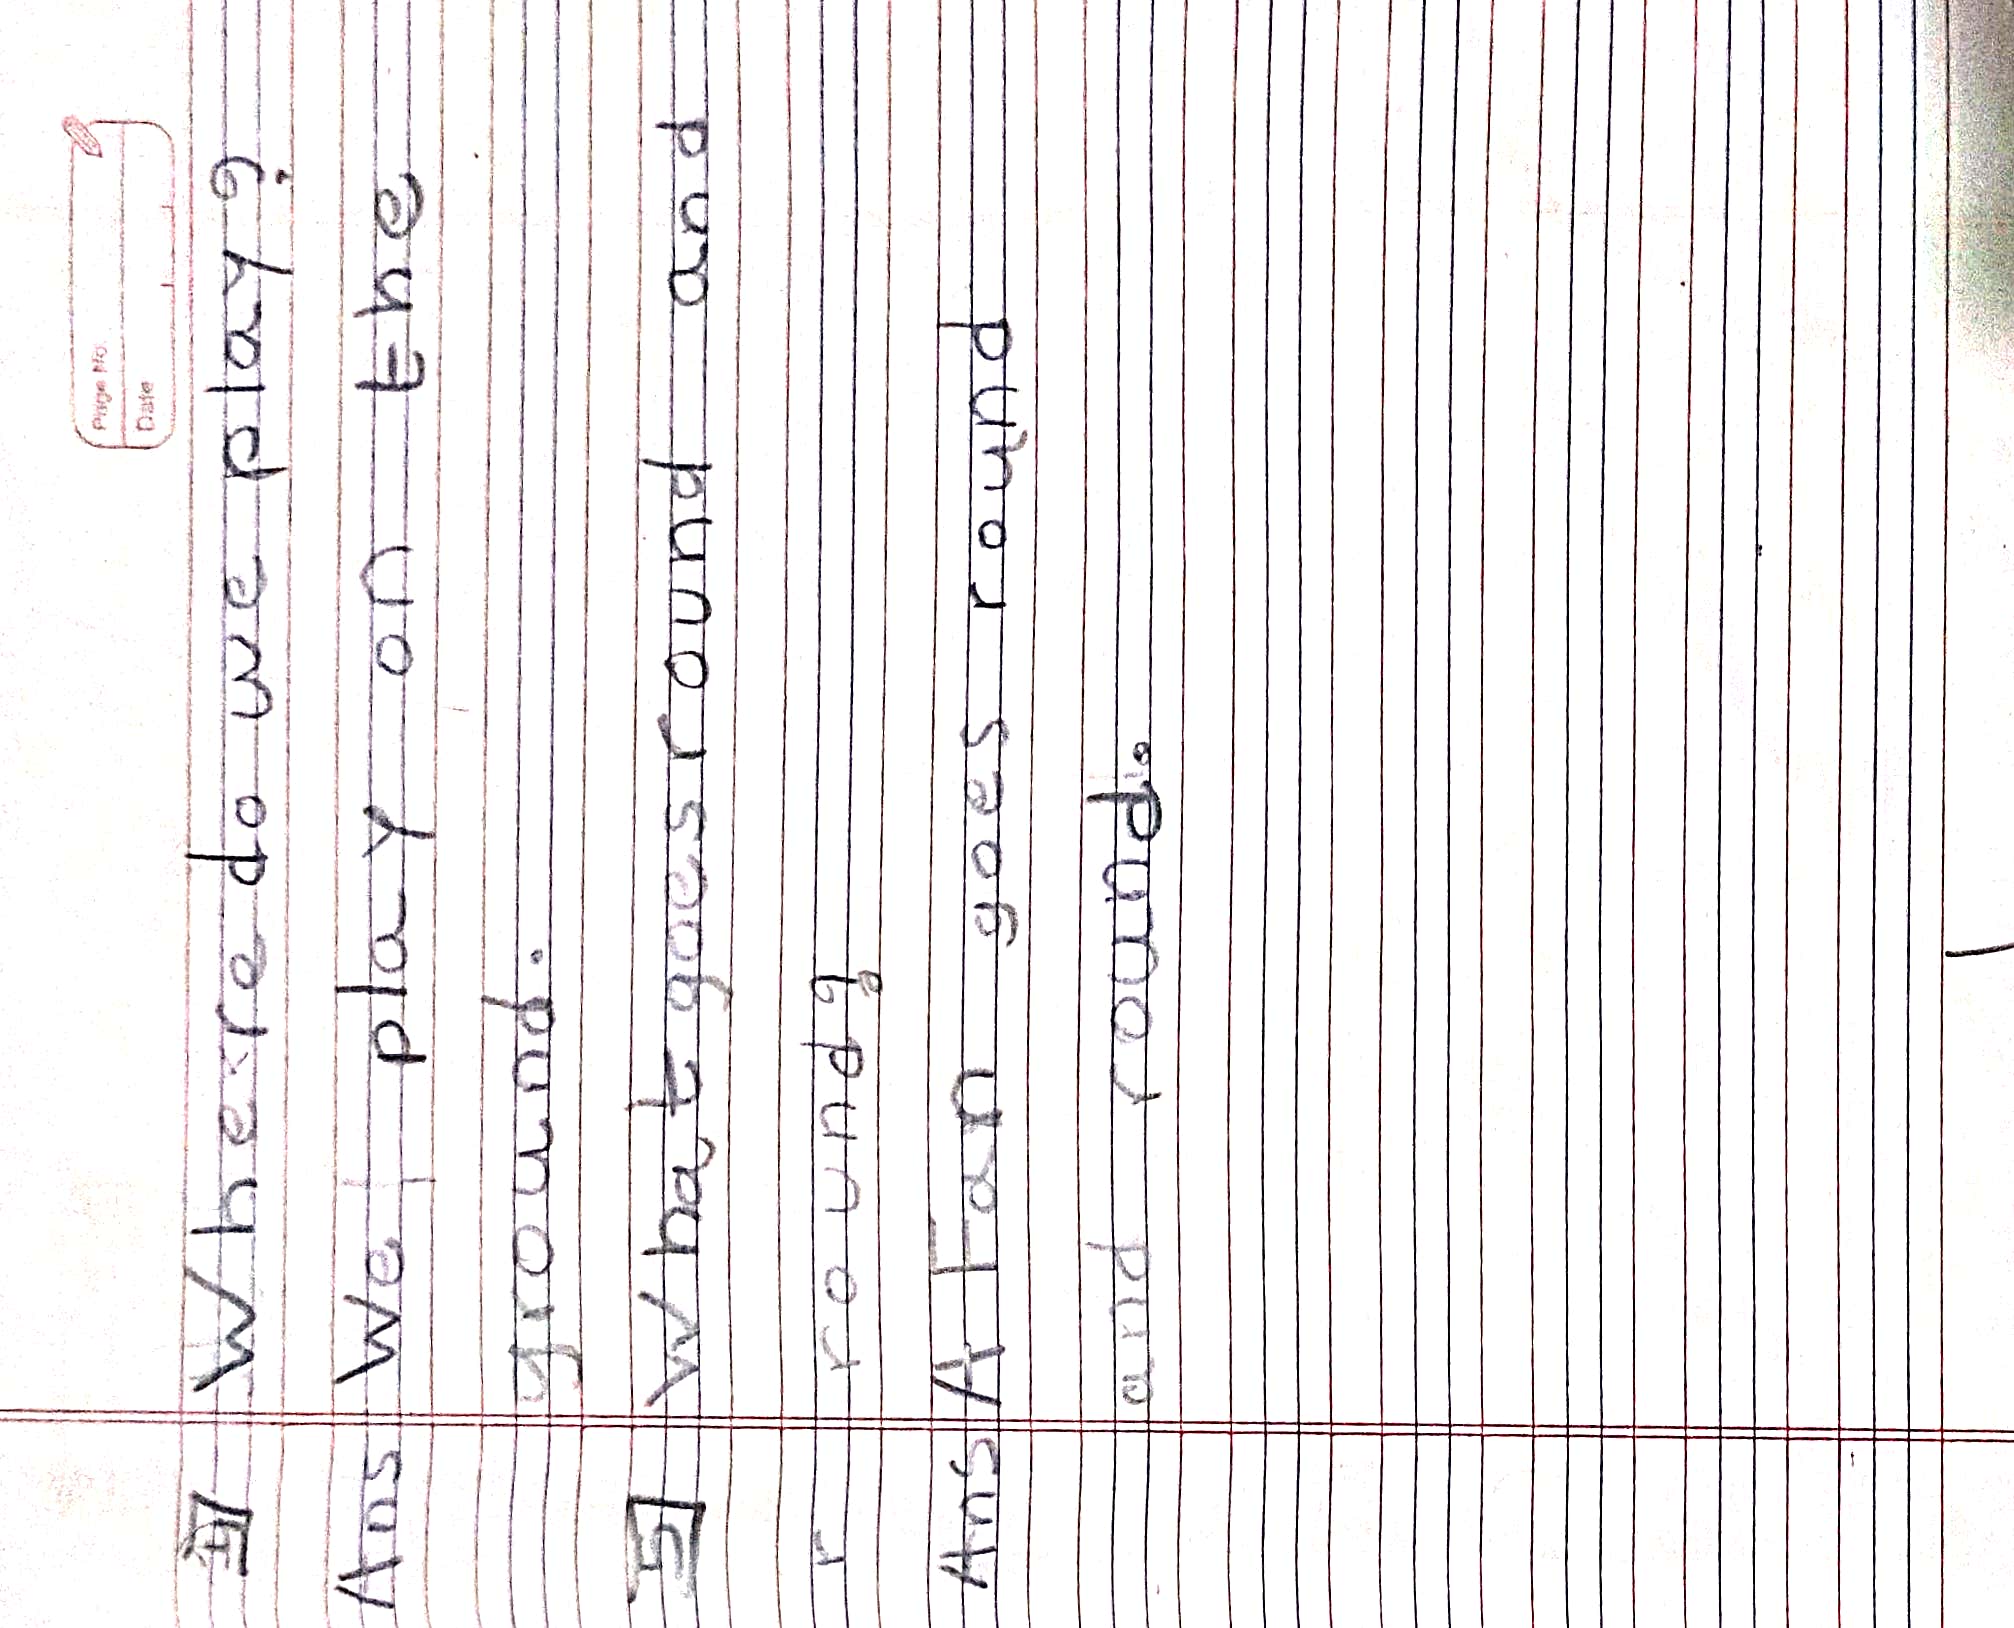 Page No.
Date
4 Where do we play?
Ans We play on the
ground.
5 What goes round and
r round?
Ans A Fan goes round
and round.